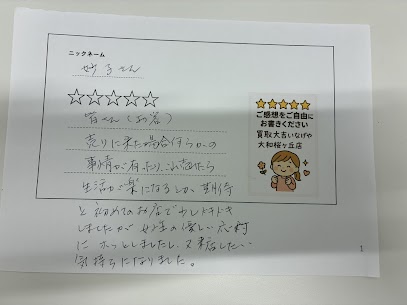 ニックネーム
妙子さん
☆☆☆☆☆
皆さん(お客)
売りに来た場合何らかの
事情が有ったり、
生活が楽になるとか期待
と初めてのお店で少しドキドキ
しましたが 女性の優しい応対
に ホッとしましたし 又来店したい
気持ちになりました。
★★★★★
ご感想をご自由に
お書きください
買取大吉いなげや
大和桜ヶ丘店
1